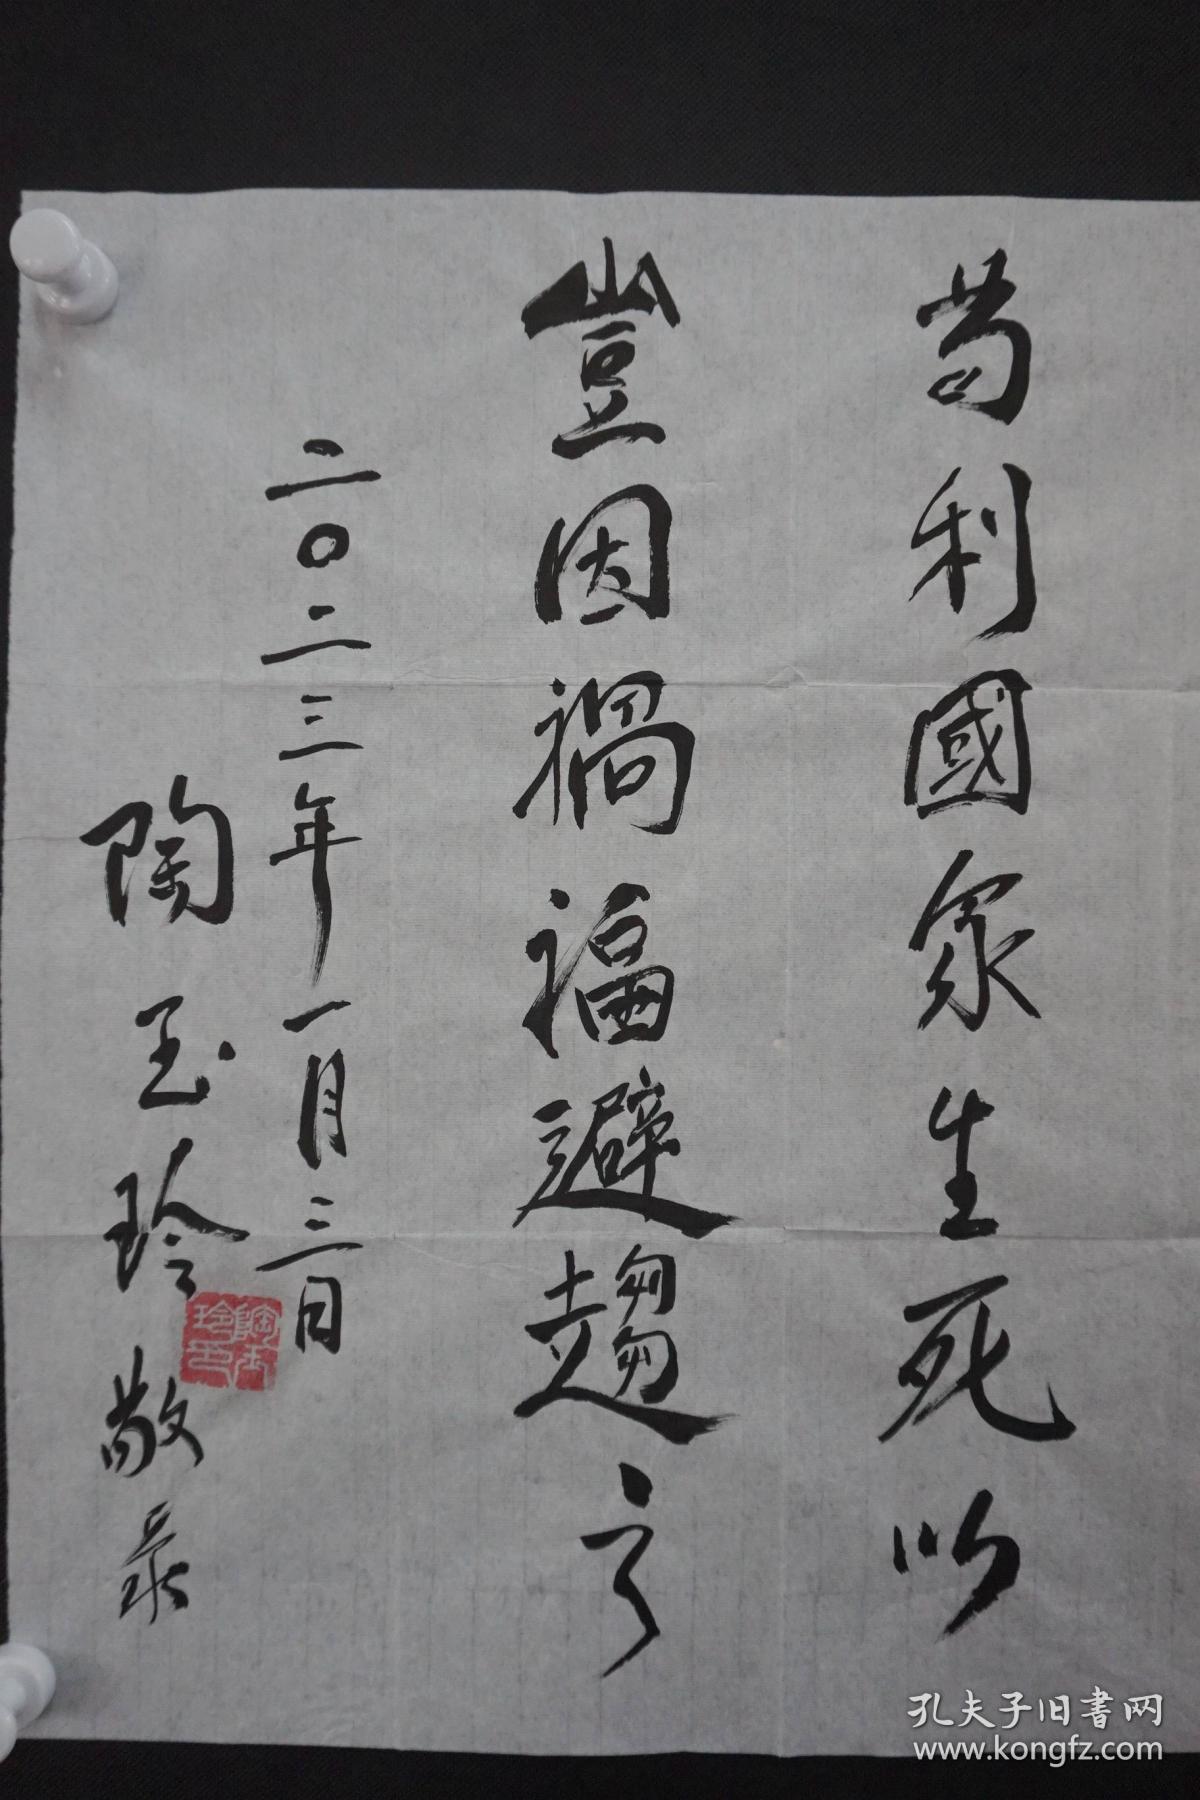 苟利國家生死以
豈因禍福避趨之
二〇二三年一月三日
陶玉玲敬录
陶玉玲印
孔夫子旧书网
www.kongfz.com